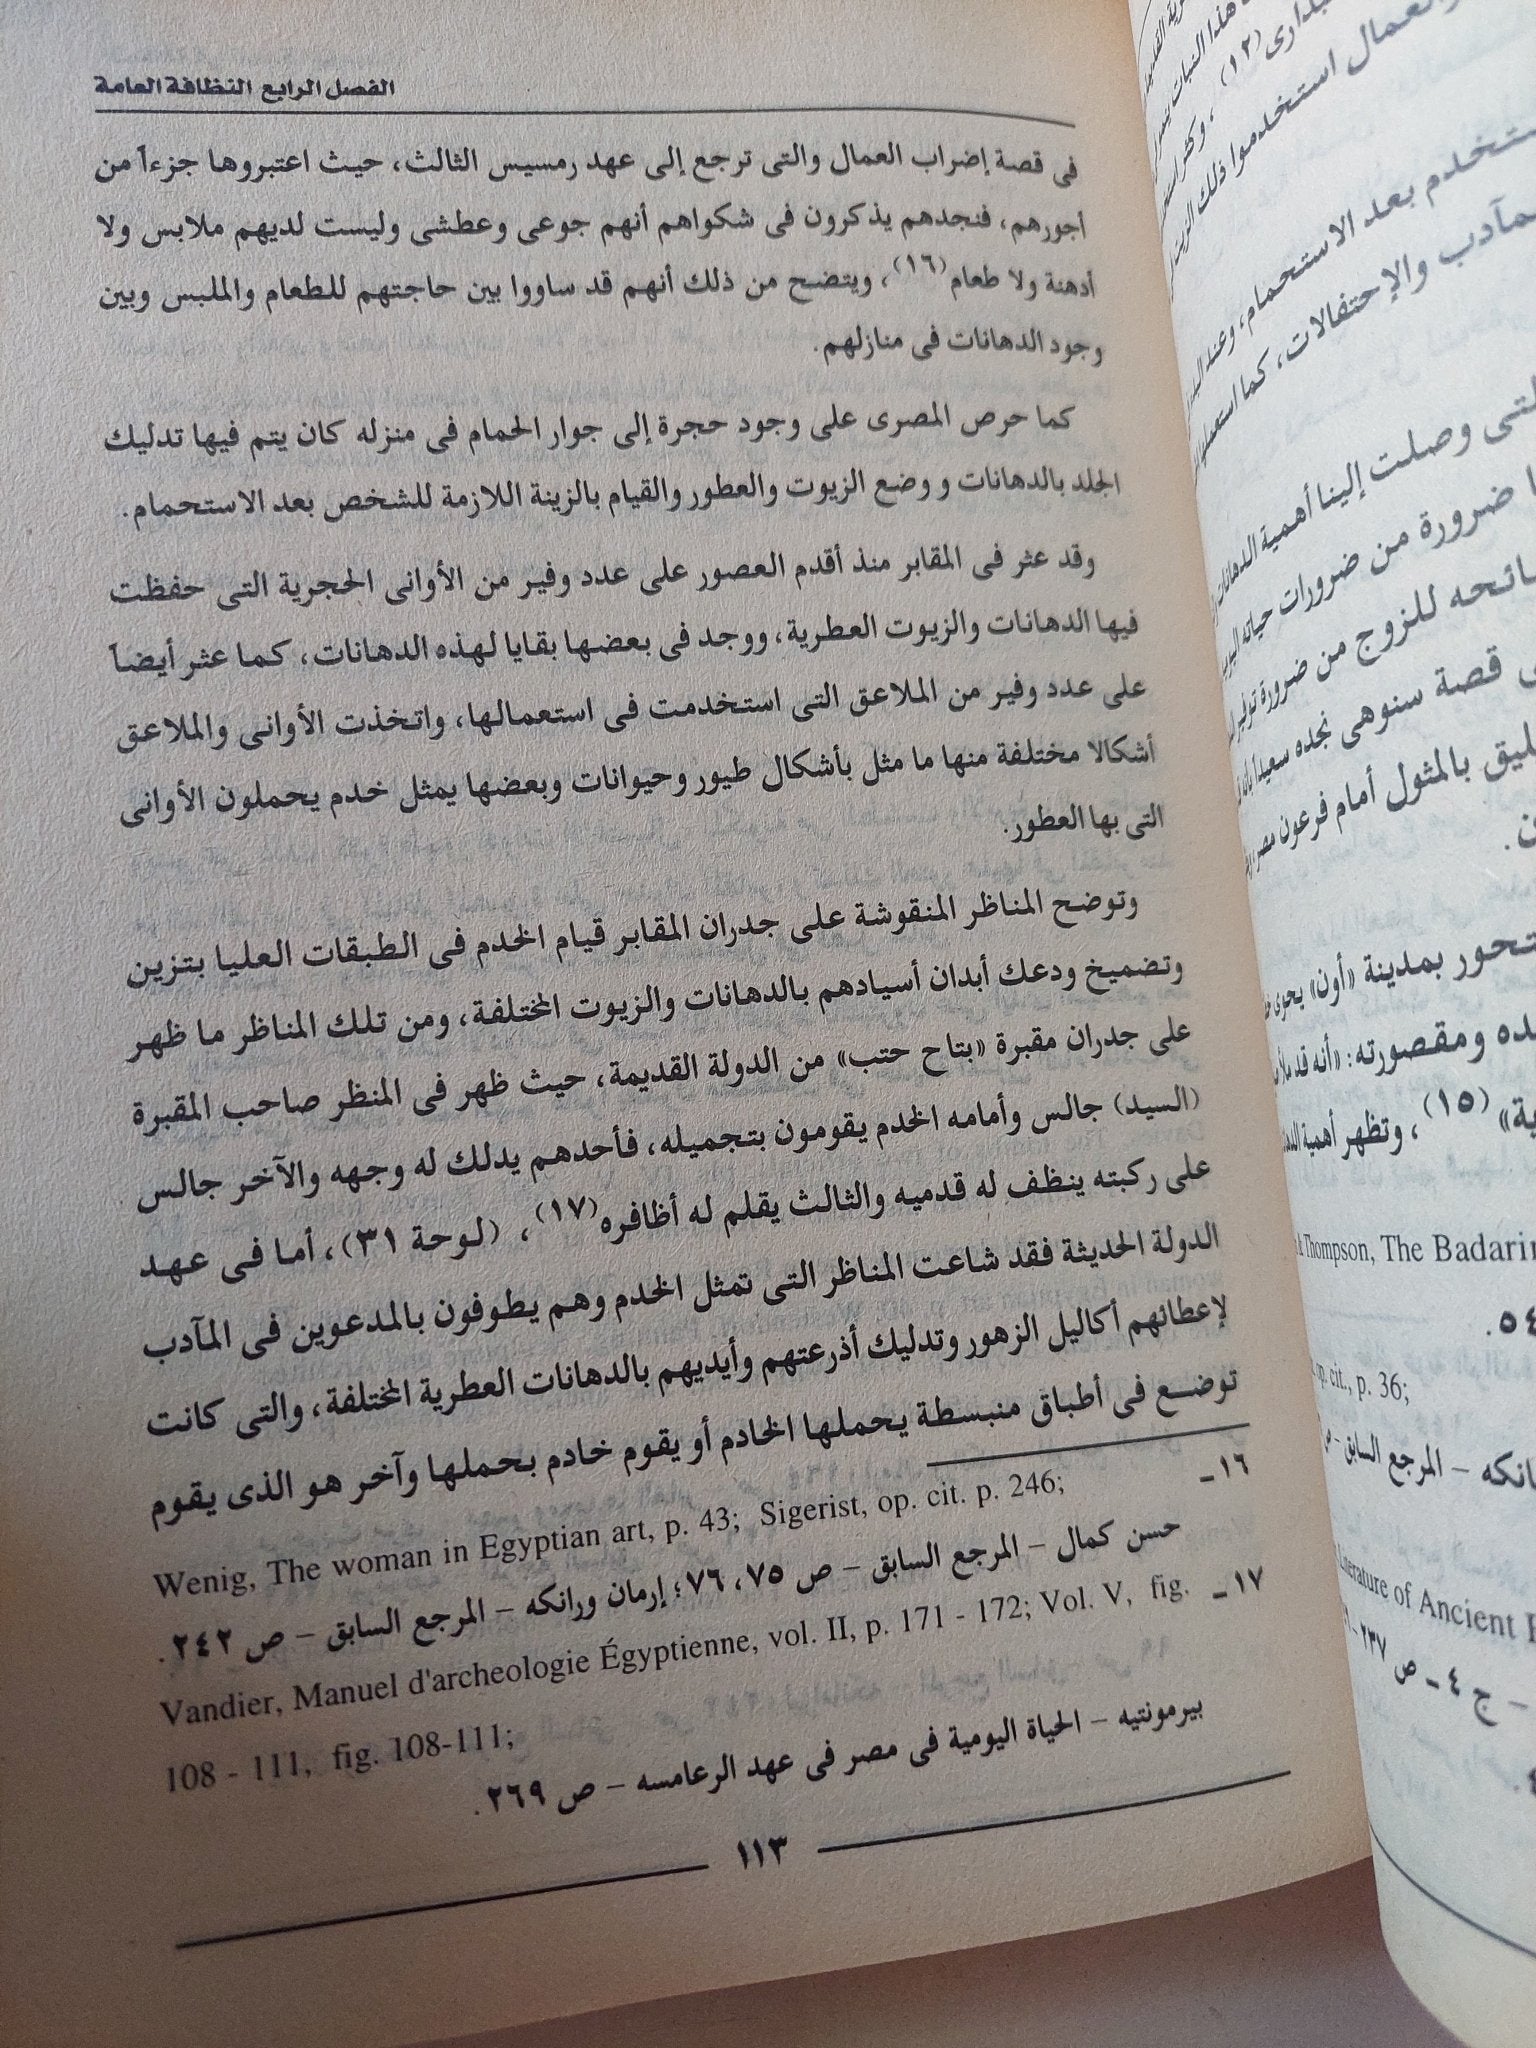 الفصل الرابع النظافة العامة
فى قصة إضراب العمال والتى ترجع إلى عهد رمسيس الثالث، حيث اعتبروها جزءاً من
أجورهم، فنجدهم يذكرون فى شكواهم أنهم جوعى وعطشى وليست لديهم ملابس ولا
أدهنة ولا طعام(١٦)، ويتضح من ذلك أنهم قد ساووا بين حاجتهم للطعام والملبس وبين
وجود الدهانات فى منازلهم.
كما حرص المصرى على وجود حجرة إلى جوار الحمام فى منزله كان يتم فيها تدليك
الجلد بالدهانات و وضع الزيوت والعطور والقيام بالزينة اللازمة للشخص بعد الاستحمام.
وقد عثر فى المقابر منذ أقدم العصور على عدد وفير من الأوانى الحجرية التى حفظت
فيها الدهانات والزيوت العطرية، ووجد فى بعضها بقايا لهذه الدهانات، كما عثر أيضاً
على عدد وفير من الملاعق التى استخدمت فى استعمالها، واتخذت الأوانى والملاعق
أشكالا مختلفة منها ما مثل بأشكال طيور وحيوانات وبعضها يمثل خدم يحملون الأوانى
التى بها العطور.
وتوضح المناظر المنقوشة على جدران المقابر قيام الخدم فى الطبقات العليا بتزين
وتضميخ ودعك أبدان أسيادهم بالدهانات والزيوت المختلفة، ومن تلك المناظر ما ظهر
على جدران مقبرة «بتاح حتب» من الدولة القديمة، حيث ظهر فى المنظر صاحب المقبرة
(السيد) جالس وأمامه الخدم يقومون بتجميله، فأحدهم يدلك له وجهه والآخر جالس
على ركبته ينظف له قدميه والثالث يقلم له أظافره(١٧)، (لوحة ٣١)، أما فى عهد
الدولة الحديثة فقد شاعت المناظر التى تمثل الخدم وهم يطوفون بالمدعوين فى المآدب
لإعطائهم أكاليل الزهور وتدليك أذرعتهم وأيديهم بالدهانات العطرية المختلفة، والتى كانت
توضع فى أطباق منبسطة يحملها الخادم أو يقوم خادم بحملها وآخر هو الذى يقوم
١٦ـ Wenig, The woman in Egyptian art, p. 43; Sigerist, op. cit. p. 246;
حسن كمال - المرجع السابق - ص ٧٥، ٧٦؛ إرمان ورانكه - المرجع السابق - ص ٢٤٢.
١٧ـ Vandier, Manuel d'archeologie Égyptienne, vol. II, p. 171 - 172; Vol. V, fig.
108 - 111, fig. 108-111;
بيرمونتيه - الحياة اليومية فى مصر فى عهد الرعامسه - ص ٢٦٩.
١١٣
هذا النبات
(١٢)
والعمال استخدموا ذلك الزيت
بعد الاستحمام، وعند
والإحتفالات، كما
التى وصلت إلينا أهمية الدهانات
ضرورة من ضرورات حياته
للزوج من ضرورة
قصة سنوهى نجده سعيداً
بالمثول أمام فرعون مصر
بمدينة «أون» يحوى
ومقصورته: «أنه قد
(١٥)، وتظهر أهمية
Thompson, The Badarin
٥٤.
op. cit., p. 36;
- المرجع السابق -
Literature of Ancient
- ج ٤ - ص ٢٣٧